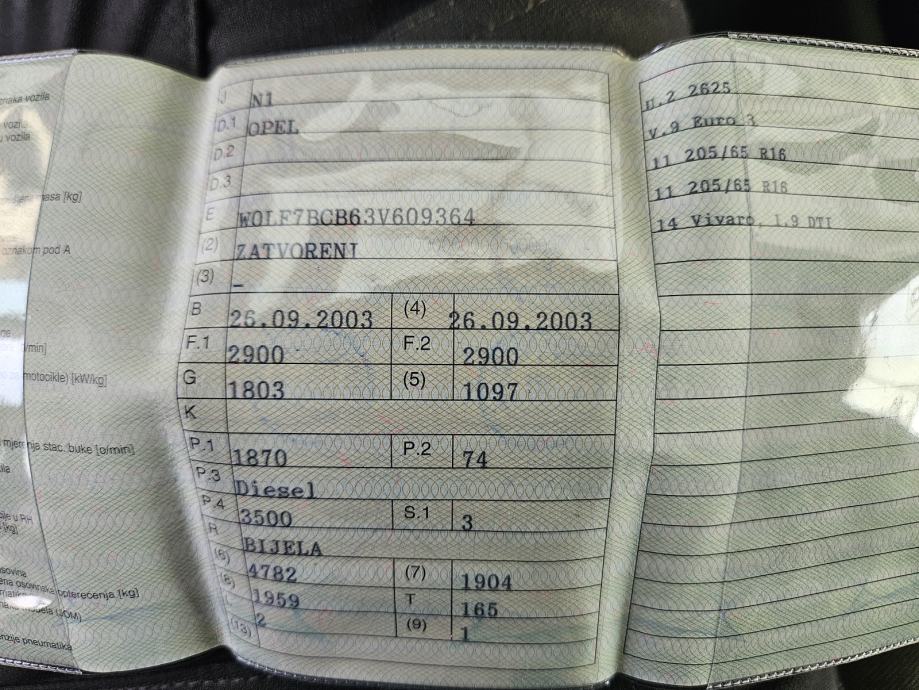 naka vozila
vozila
masa [kg]
oznakom pod A
/min]
motocikle) [kW/kg]
mjerenja stac. buke [o/min]
ije u RH
[kg]
osovina
osovinska opterećenja [kg]
pneumatika
J N1
D.1 OPEL
D.2
D.3
E W0LF7BCB63V609364
(2) ZATVORENI
(3) –
B 26.09.2003 (4) 26.09.2003
F.1 2900 F.2 2900
G 1803 (5) 1097
K
P.1 1870 P.2 74
P.3 Diesel
P.4 3500 S.1 3
R BIJELA
(6) 4782 (7) 1904
(8) 1959 T 165
L 2 (9) 1
(13)
U.2 2625
V.9 Euro 3
11 205/65 R16
11 205/65 R16
14 Vivaro, 1.9 DTI